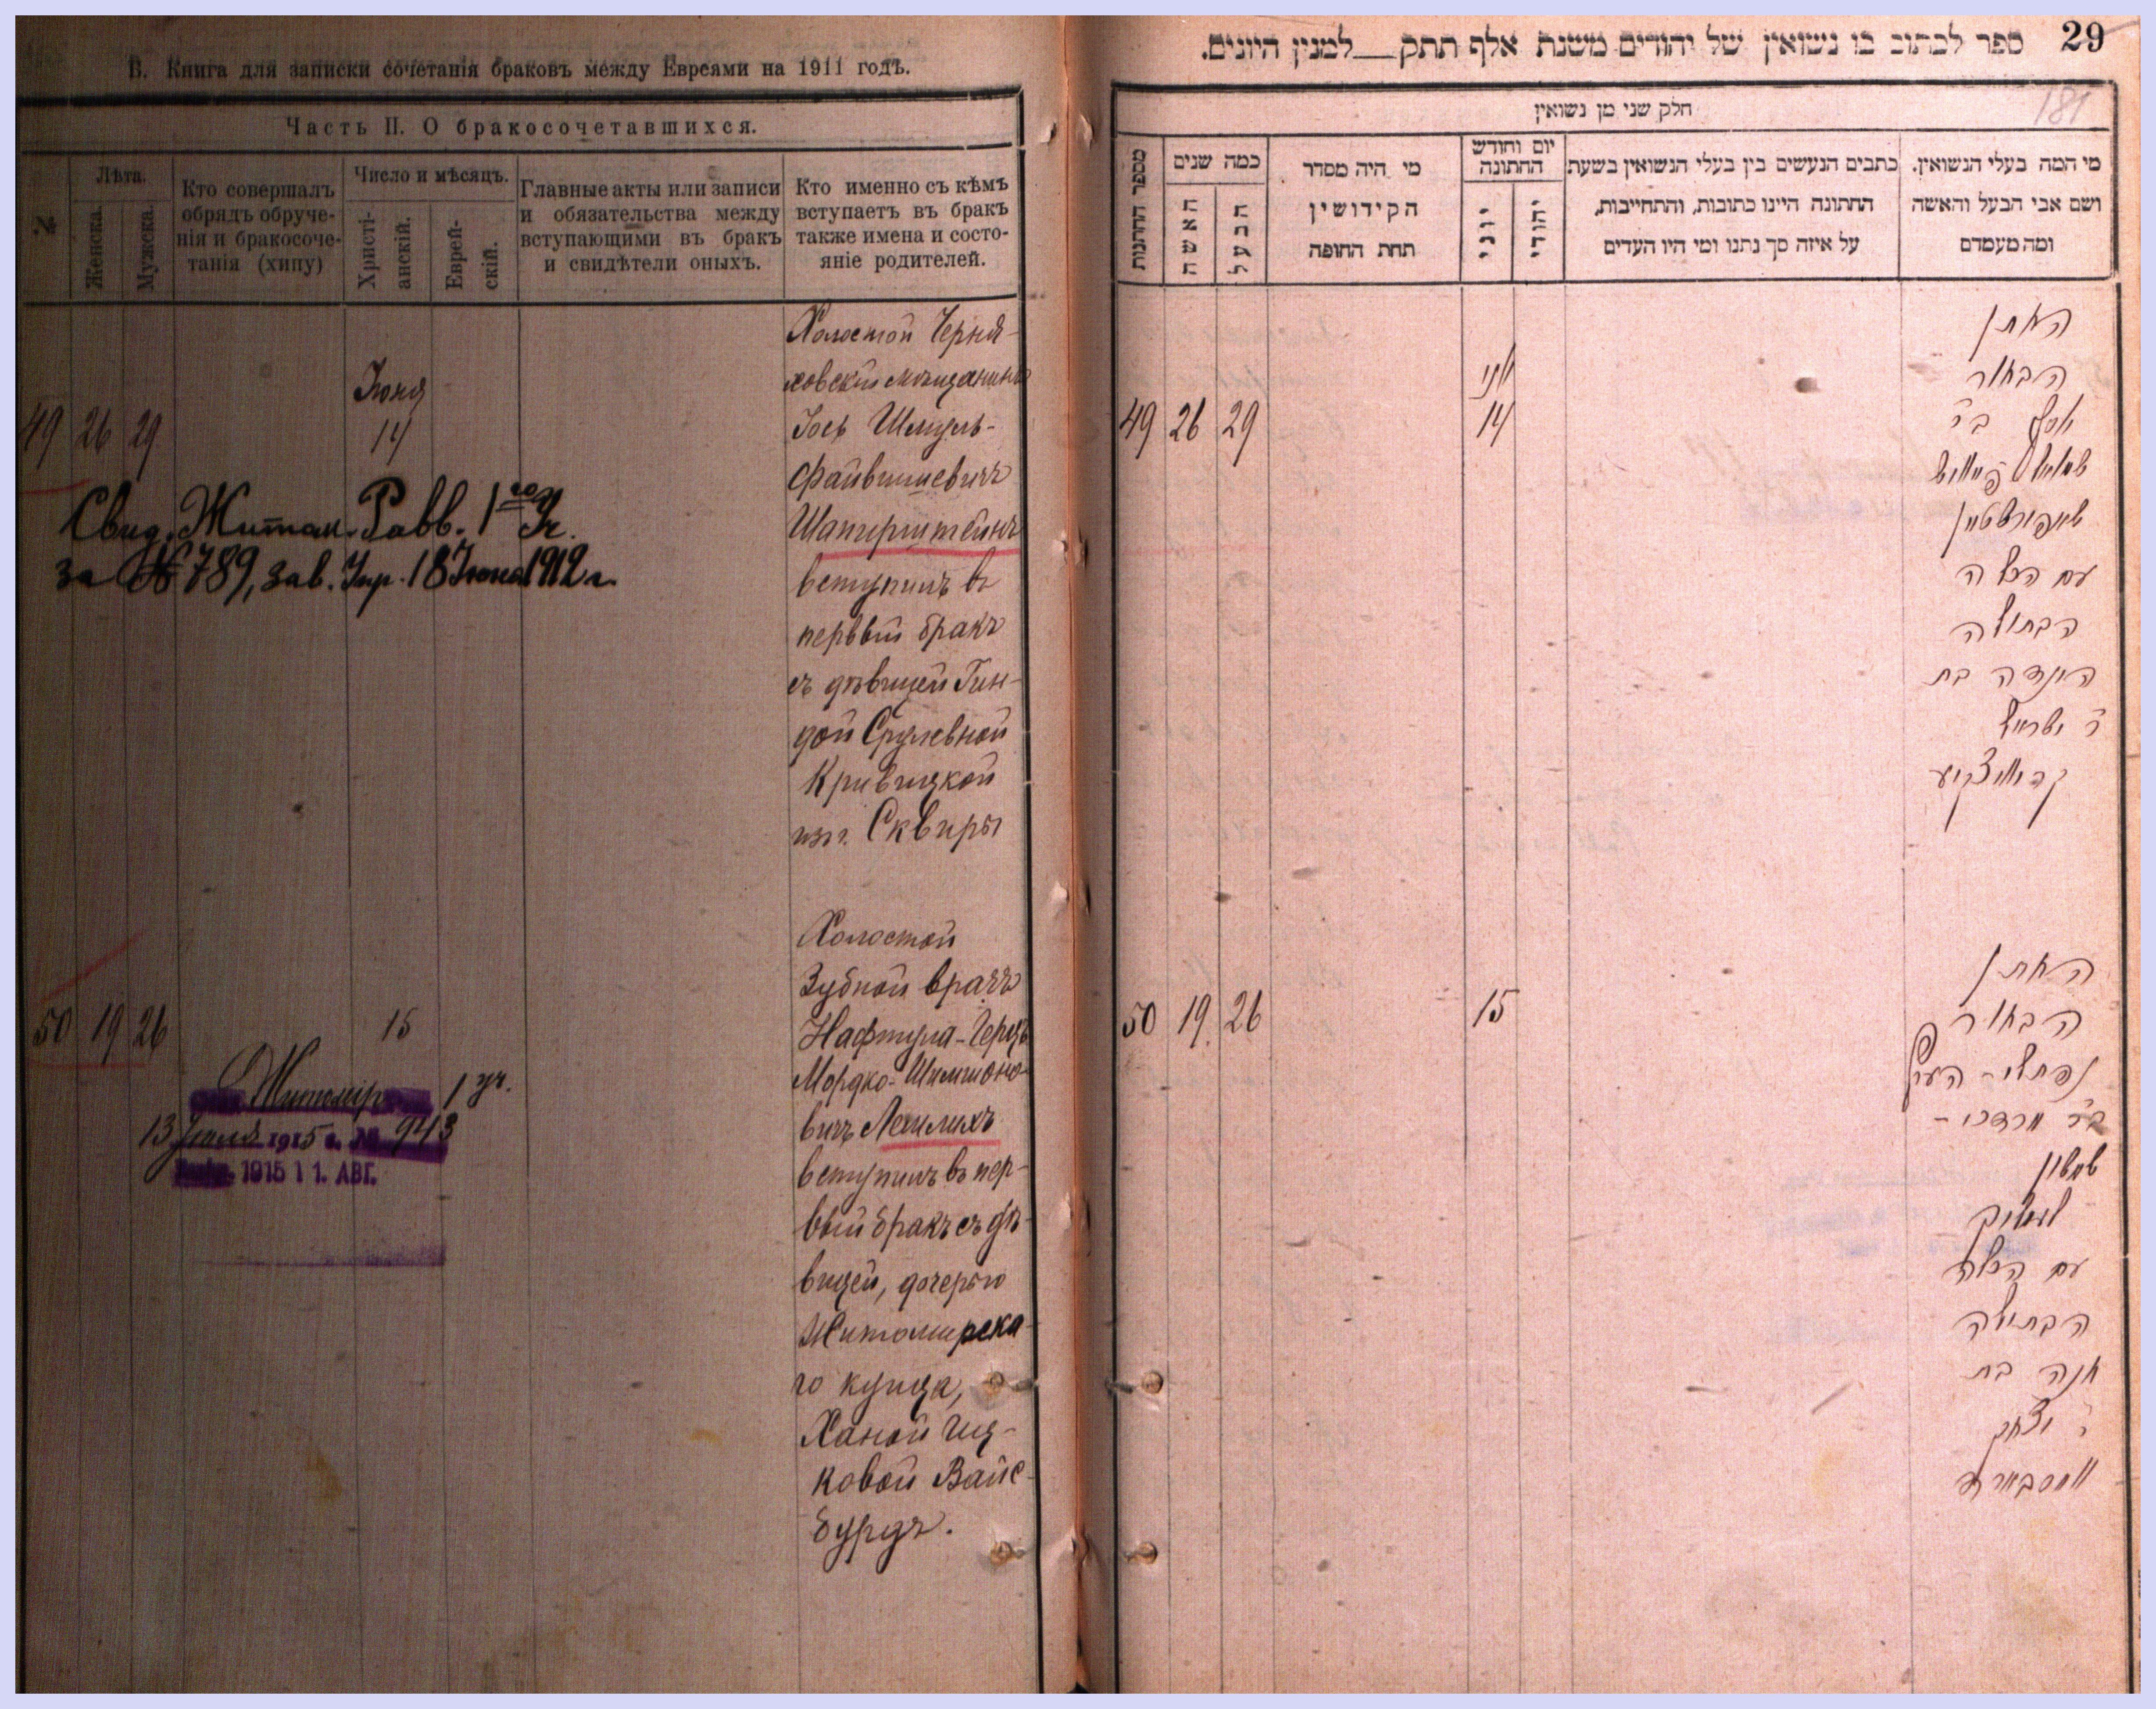 В. Книга для записки сочетанія браковъ между Евреями на 1911 годъ.
Часть II. О бракосочетавшихся.
№
Лѣта.
Женска.
Мужска.
Кто совершалъ
обрядъ обруче-
нія и бракосоче-
танія (хипу)
Число и мѣсяцъ.
Христі-
анскій.
Еврей-
скій.
Главные акты или записи
и обязательства между
вступающими въ бракъ
и свидѣтели оныхъ.
Кто именно съ кѣмъ
вступаетъ въ бракъ
также имена и состо-
яніе родителей.
49 26 29
Іюня
14
Холостой Черня-
ховскій мѣщанинъ
Іось Шмуль-
Файвишевичъ
Шапирштейнъ
вступилъ въ
первый бракъ
съ дѣвицей Гин-
дой Срулевной
Кривицкой
изъ г. Сквиры
Свид. Житом. Равв. 1го Уч.
за № 789, зав. Упр. 18 Іюня 1912 г.
50 19 26
15
Холостой
Зубной врачъ
Нафтула-Герцъ
Мордко-Шимшоно-
вичъ Лемлихъ
вступилъ въ пер-
вый бракъ съ дѣ-
вицей, дочерью
Житомирска-
го купца,
Ханой Иц-
ковой Вайс-
бурдъ.
Житомір 1 уч.
13 Іюля 1915 г. № 943
1915 11. АВГ.
29 ספר לכתוב בו נשואין של יהודים משנת אלף תתק__למנין היונים.
181
חלק שני מן נשואין
מספר החתונות
כמה שנים
האשה
הבעל
מי היה מסדר
הקידושין
תחת החופה
יום וחודש
החתונה
יוני
יהודי
כתבים הנעשים בין בעלי הנשואין בשעת
החתונה היינו כתובות, והתחייבות,
על איזה סך נתנו ומי היו העדים
מי המה בעלי הנשואין.
ושם אבי הבעל והאשה
ומה מעמדם
49 26 29
יוני
14
החתן
הבחור
יוסף ב״ר
שמואל פייוויש
שפירשטיין
עם הכלה
הבתולה
הינדה בת
ר׳ ישראל
קריוויצקיע
50 19 26
15
החתן
הבחור
נפתלי - הערץ
ב״ר מרדכי -
שמשון
לעמליך
עם הכלה
הבתולה
חנה בת
ר׳ יצחק
ווייסבורד